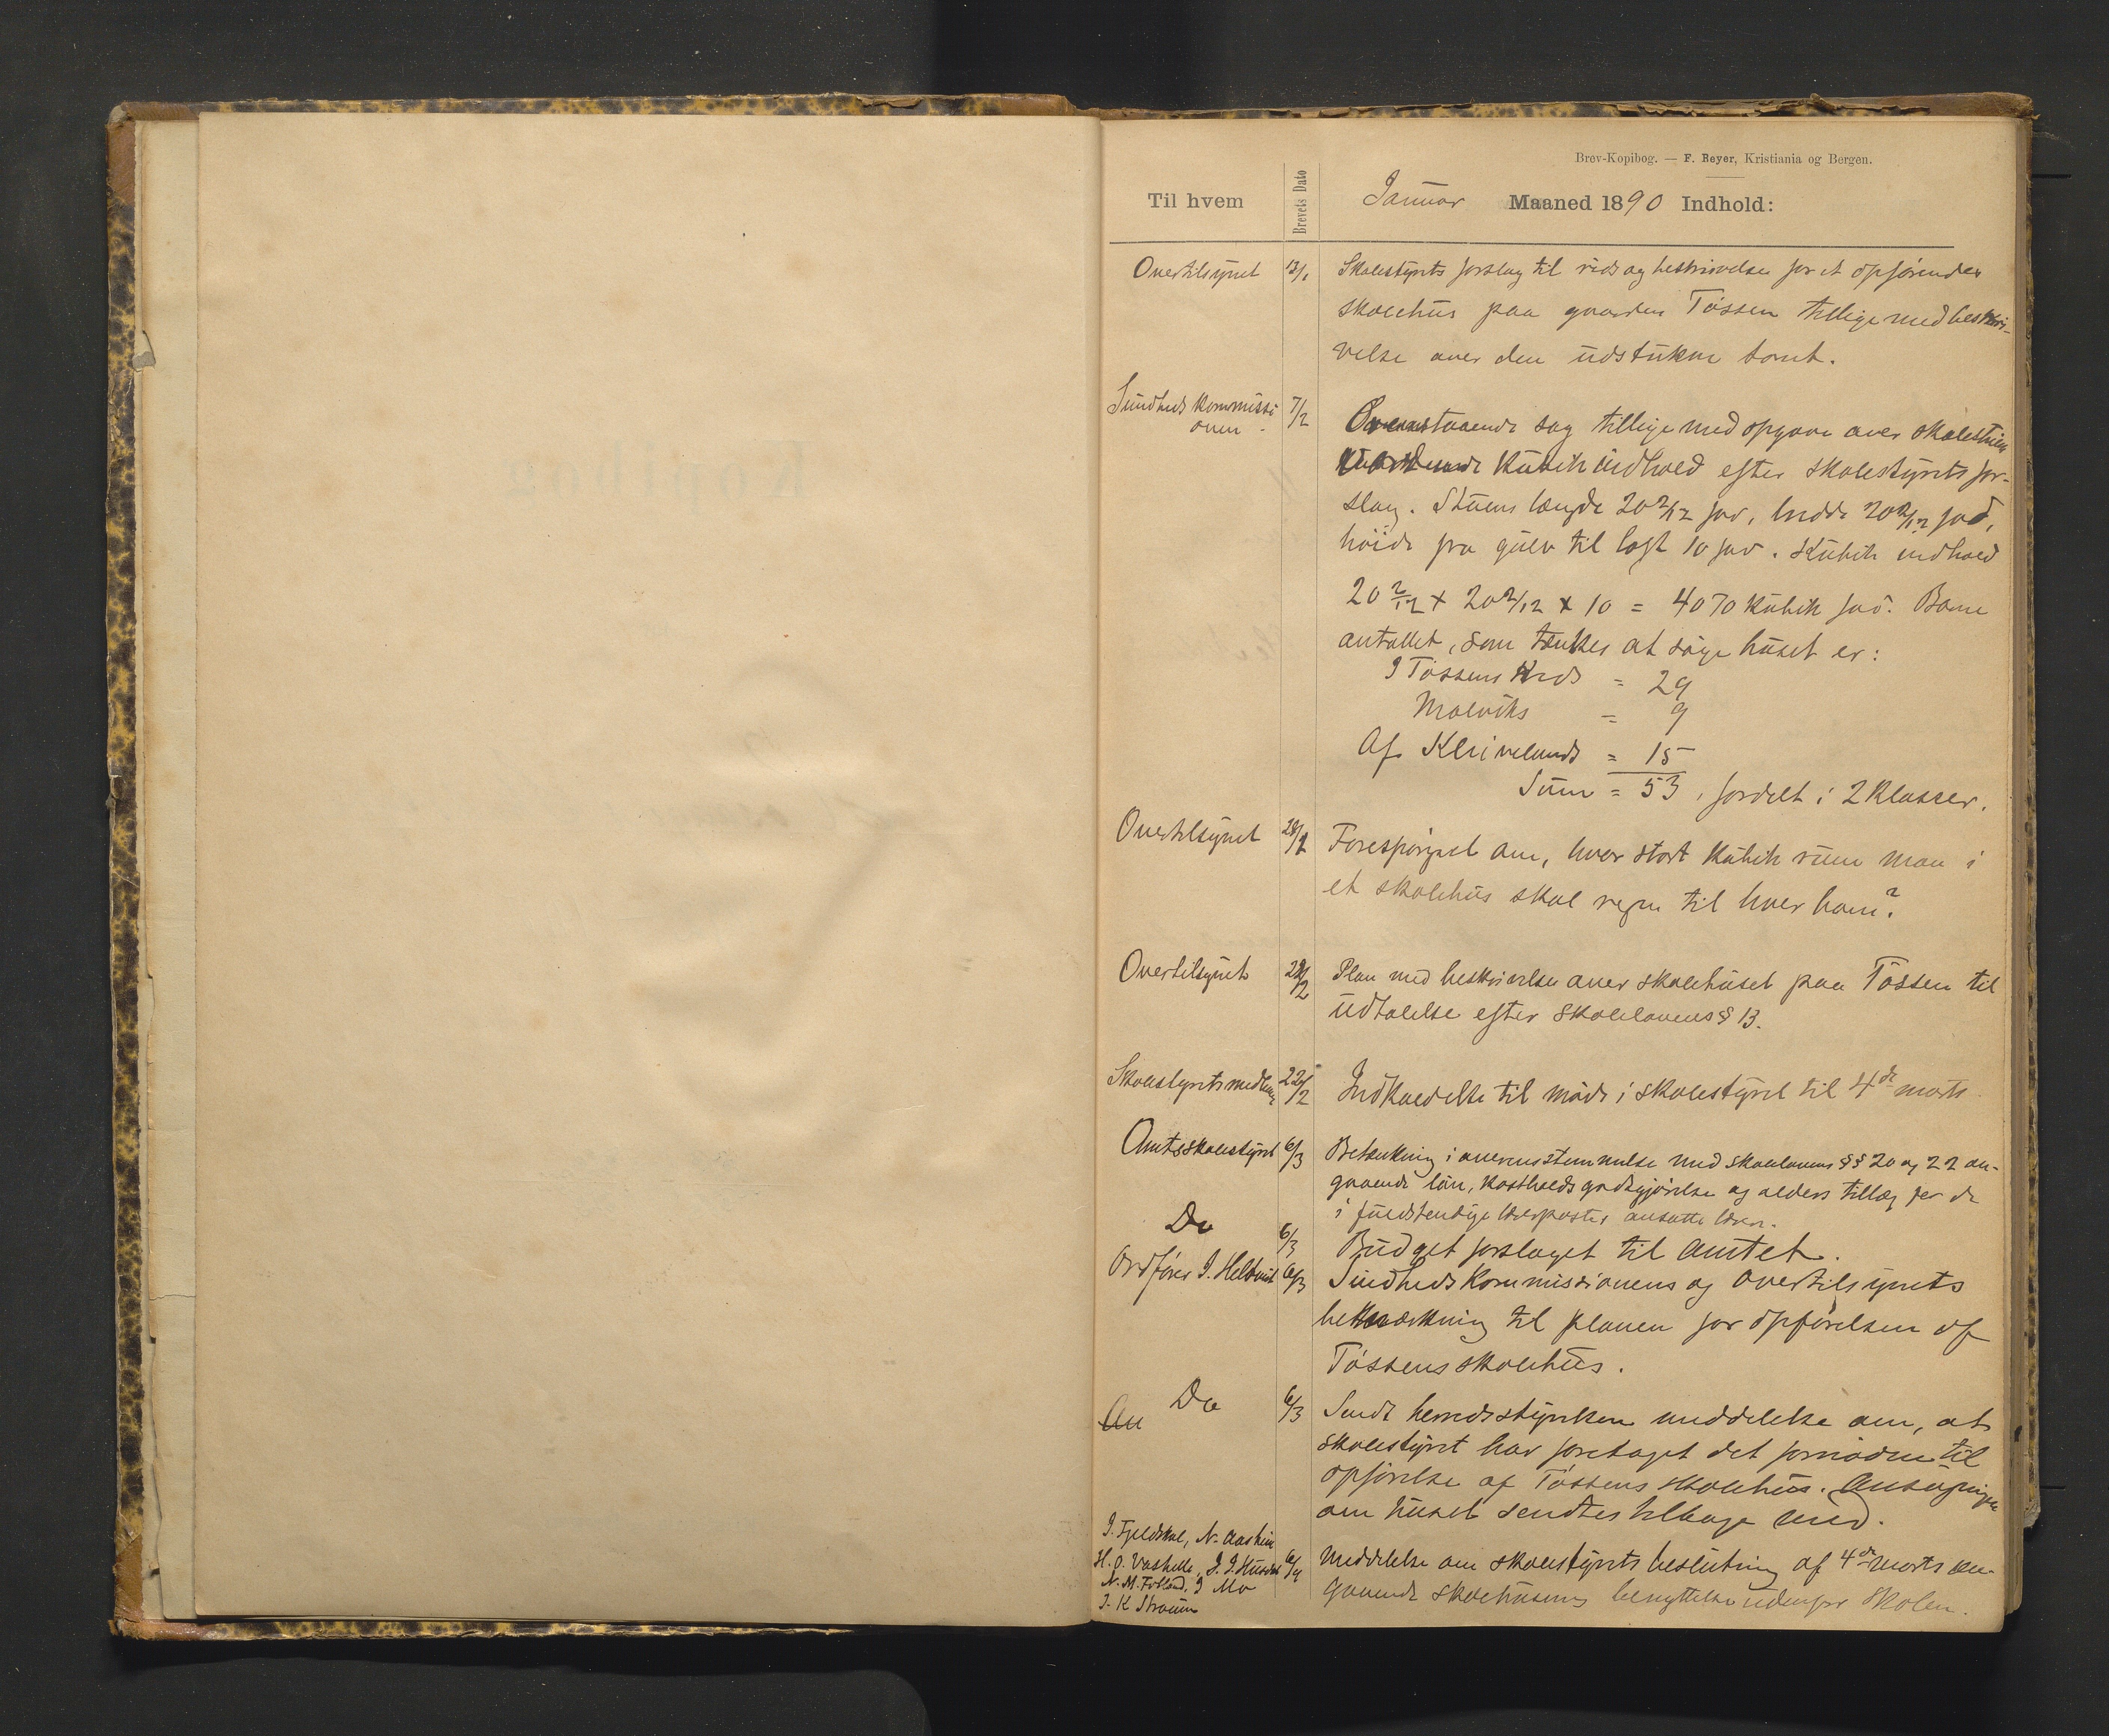 Brev-Kopibog. — F. Beyer, Kristiania og Bergen.
Til hvem Brevets Dato Januar Maaned 1890 Indhold:
Overtilsynet 13/1 Skolestyrets forslag til rids og beskrivelse for et opförendes
skolehus paa gaarden Tössen tillige med beskri-
velse over den udstukne tomt.
Sundheds kommissi 7/2 Ovenstaaende sag tillige med opgave over skolestuens
onen.
kubik indhold efter skolestyrets for-
slag. Stuens længde 20 2/12 fod, bredde 20 2/12 fod,
höide fra gulv til loft 10 fod. Kubik indhold
20 2/12 x 20 2/12 x 10 = 4070 kubik fod. Barne
antallet, som tænkes at söge huset er:
I Tössens kreds = 29
Malviks = 9
Af Kleivelands = 15
Sum = 53, fordelt i 2 klasser.
Overtilsynet 28/2 Forespörgsel om, hvor stort kubik rum man i
et skolehus skal regne til hver barn?
Overtilsynet 28/2 Plan med beskrivelse over skolehuset paa Tössen til
udtalelse efter skolelovens § 13.
Skolestyrets medlem 22/2 Indkaldelse til möde i skolestyret til 4de marts
Amtsskolestyret 6/3 Betænkning i overensstemmelse med skolelovens §§ 20 og 22 an-
gaaende lön, kostholdsgodtgjörelse og alders tillæg for de
i fuldstendige lærerposter ansatte lærere.
Do 6/3 Budget forslaget til Amtet.
Ordförer J. Heltvik 6/3 Sundheds kommissionens og overtilsynets
bemærkning til planen for opförelsen af
Tössens skolehus.
An Do 6/3 Sendt herredsstyrelsen meddelelse om, at
skolestyret har foretaget det fornödne til
opförelse af Tössens skolehus. Ansögningen
om huset sendtes tilbage med.
J. Fjeldskal, N. Aasheim
H. O. Vashelle, J. J. Husdal 6/4 Meddelelse om skolestyrets beslutning af 4de marts an-
N. M. Folland. J Mo gaaende skolehusenes benyttelse udenfor skolen.
J. K Straum